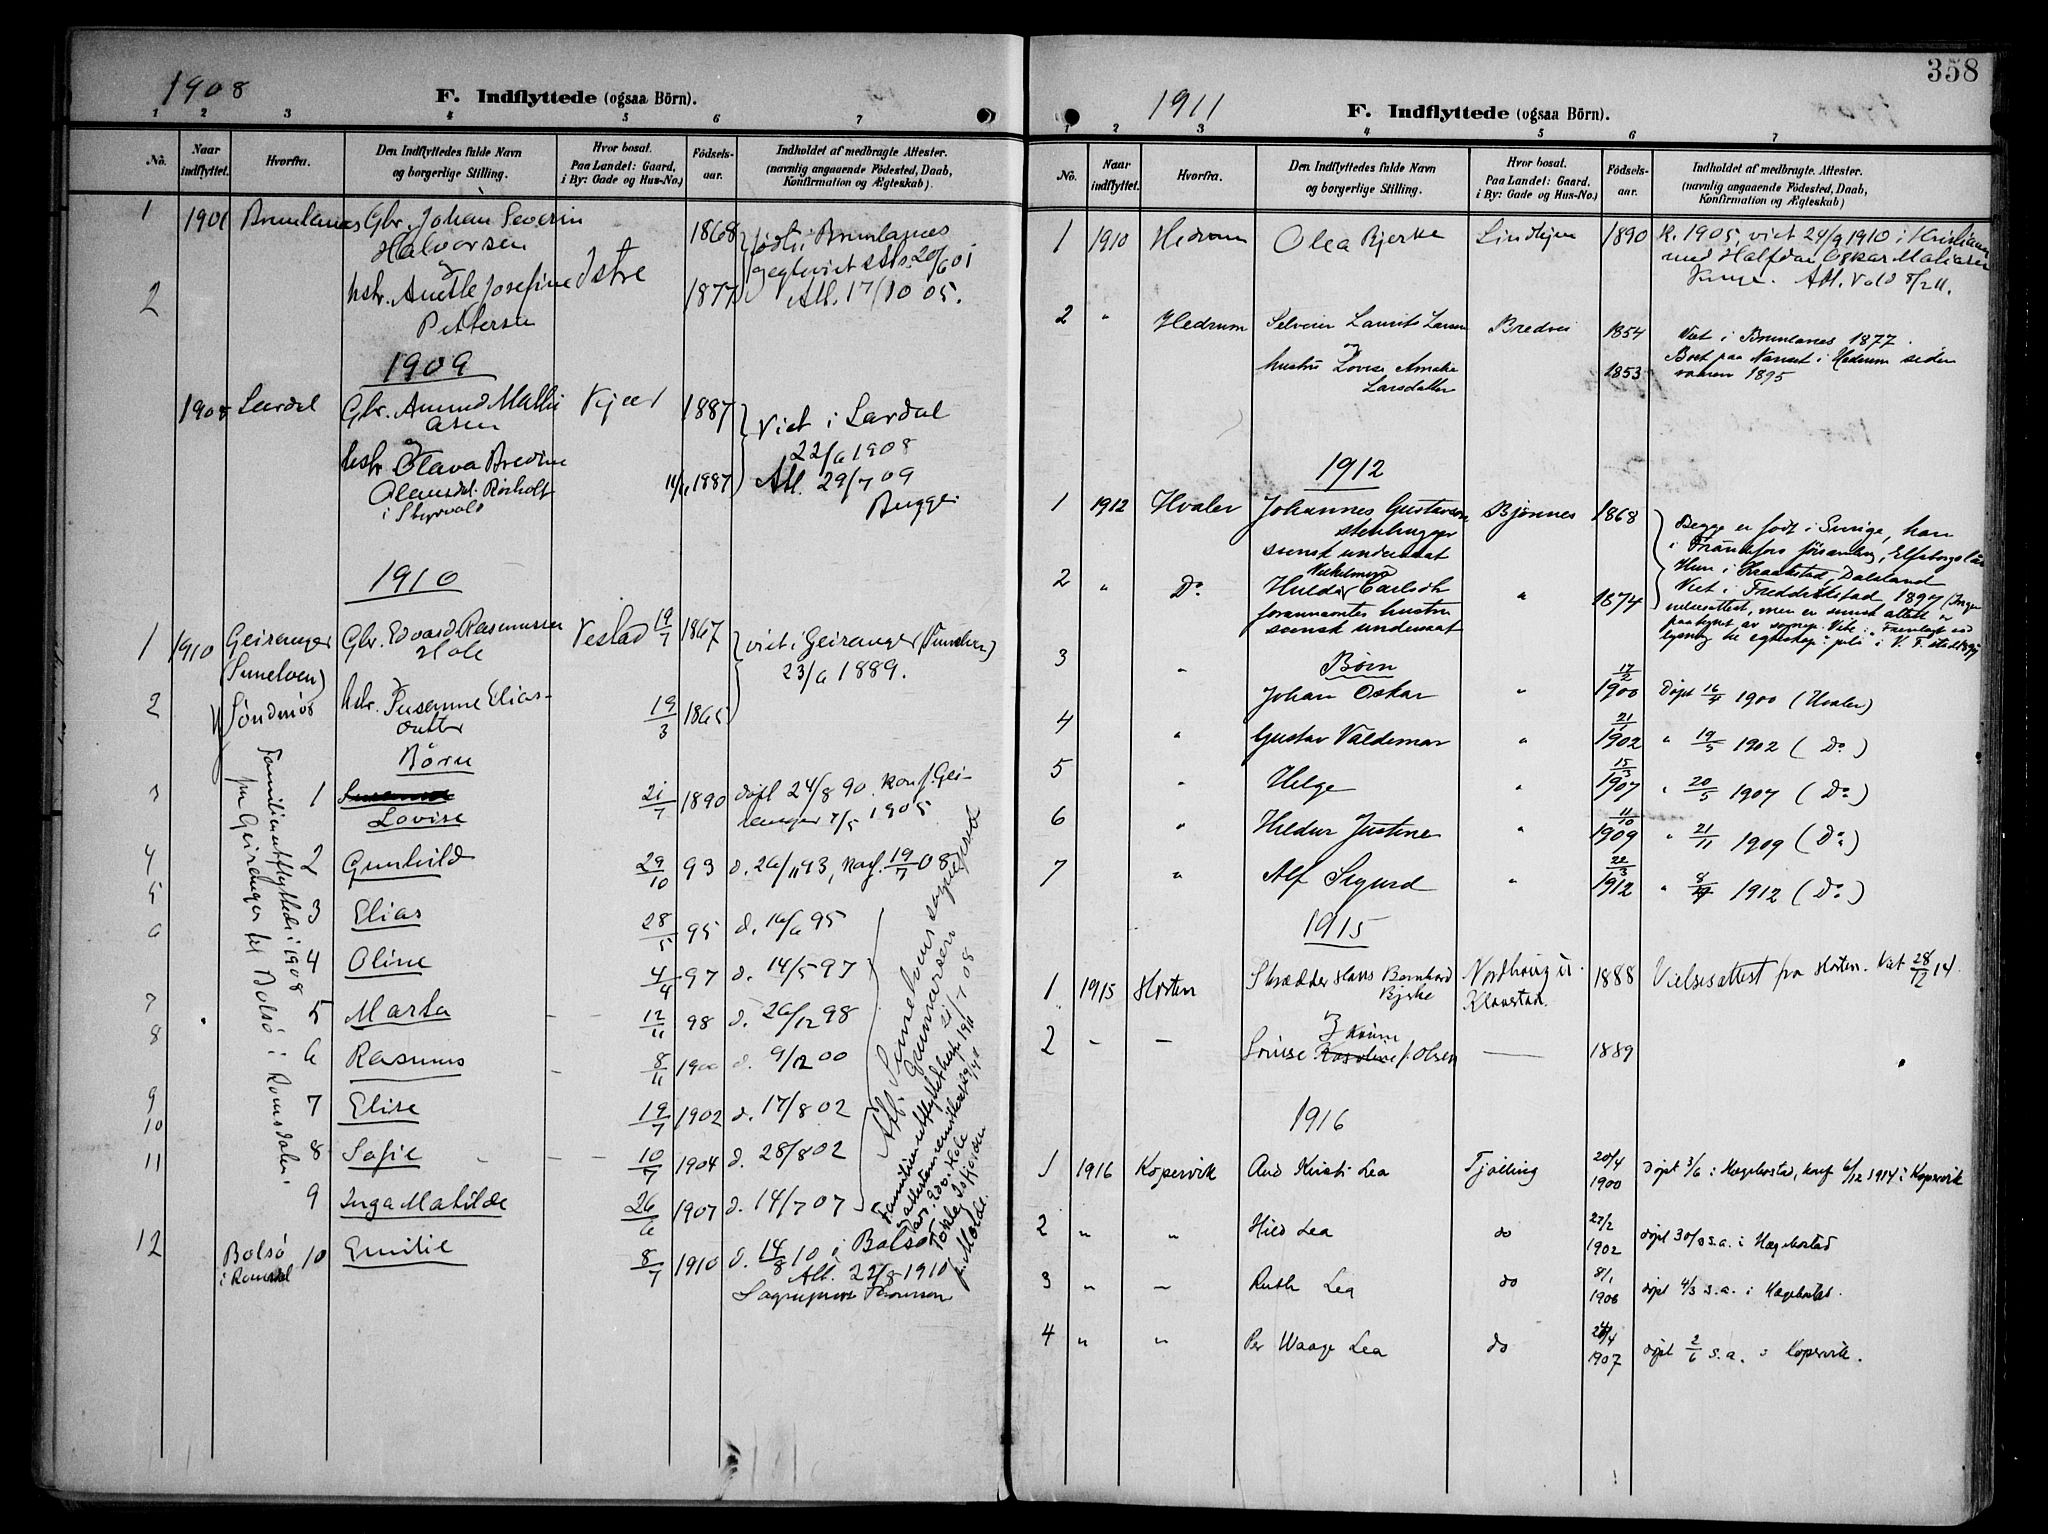 1908
F. Indflyttede (ogsaa Börn).
1 2 3 4 5 6 7
No. Naar indflyttet. Hvorfra. Den Indflyttedes fulde Navn og borgerlige Stilling. Hvor bosat. Paa Landet: Gaard, i By: Gade og Hus-No.) Födsels-aar. Indholdet af medbragte Attester. (navnlig angaaende Födested, Daab, Konfirmation og Ægteskab).
1 1901 Brunlanes Gbr. Johan Severin 1868 født i Brunlanes
Halvorsen
Istre
2 hstr. Anette Josefine 1877 Att. 17/10 05.
Pettersen
1909
1908 Lardal Gbr. Amund Mathi 1887 Viet i Lardal
asen
22/6 1908
hstr Olava Bredine 11/11 1887 Att. 29/7 09
Olausdtr. Rørholt Bugge
i Styrvold
1910
1 1910 Geiranger Gbr. Edvard Rasmussen Vestad 19/7 1867 viet i Geiranger (Sunelven)
(Sunelven) Hole 23/6 1889.
2 Søndmør hstr. Susanne Elias- 19/3 1865
datter
Børn
Familien utflyttede i 1908
fra Geiranger til Bolsø i Romsdalen
3 1 Lovise 21/7 1890 døpt 24/8 90. konf. Gei-
ranger 7/5 1905
4 2 Gunhild 29/10 93 d. 26/11 93, konf. 19/7 08
5 3 Elias 28/5 95 d. 16/6 95
6 4 Oline 4/4 97 d. 14/5 97
7 5 Marta 12/11 98 d. 26/12 98
8 6 Rasmus 8/11 1900 d. 9/12 00
9 7 Elise 19/7 1902 d. 17/8 02
10 8 Sofie 10/7 1904 d. 28/8 02
11 9 Inga Matilde 26/6 1907 d. 14/7 07
Att. Sunelvens sogneprest
Gunnarsen 21/7 08
12 Bolsø 10 Emilie 8/7 1910 d. 14/8 10 i Bolsø
i Romsdal Att. 22/8 1910
Sogneprest
358
1911
F. Indflyttede (ogsaa Börn).
1 2 3 4 5 6 7
No. Naar indflyttet. Hvorfra. Den Indflyttedes fulde Navn og borgerlige Stilling. Hvor bosat. Paa Landet: Gaard, i By: Gade og Hus-No.) Födsels-aar. Indholdet af medbragte Attester. (navnlig angaaende Födested, Daab, Konfirmation og Ægteskab)
1 1910 Hedrum Olea Bjerke Lindhjem 1890 k. 1905, viet 24/9 1910 i
med Halfdan Oskar
2 " Hedrum Selveier Laurits Larsen Bredvei 1854 Viet i Brunlanes 1877.
og Boet paa Nanset i Hedrum siden
hustru Lovise Amalie 1853 vaaren 1895
Larsdatter
1912
1 1912 Hvaler Johannes Gustavson Bjønnes 1868 Begge er født i Sverige, han
stenhugger
svensk undersaat
Hun i Kraakstad, Dalsland
2 " Do. Hulda Vilhelmina Carlsdtr " 1874 Viet i Fredrikstad 1897
forannævntes hustru
svensk undersaat
Børn
3 " Johan Oskar " 17/2 1900 Døpt 16/4 1900 (Hvaler)
4 " Gustav Valdemar " 21/1 1902 " 19/5 1902 (Do)
5 " Helge " 15/3 1907 " 20/5 1907 (Do)
6 " Hildur Justine " 11/10 1909 " 21/11 1909 (Do)
7 " Alf Sigurd " 22/3 1912 " 8/4 1912 (Do)
1915
1 1915 Horten Skrædder Hans Bernhard Nordhaug u. 1888 Vielsesattest fra Horten. Viet 28/12 14.
Bjerke Klaastad.
2 – – Lovise f. Olsen — 1889
1916
1 1916 Kopervik Aud Kirsti Lea Tjølling 20/4 1900 døpt 3/6 i Hægebostad, konf 6/12 1914 i Kopervik
2 " " Hild Lea do 27/2 1902 døpt 30/3 s.a. i Hægebostad
3 " – Ruth Lea do 8/1 1906 døpt 4/3 s.a. i Hægebostad.
4 " " Per Waage Lea do 1907 døpt 2/6 s.a. i Kopervik.